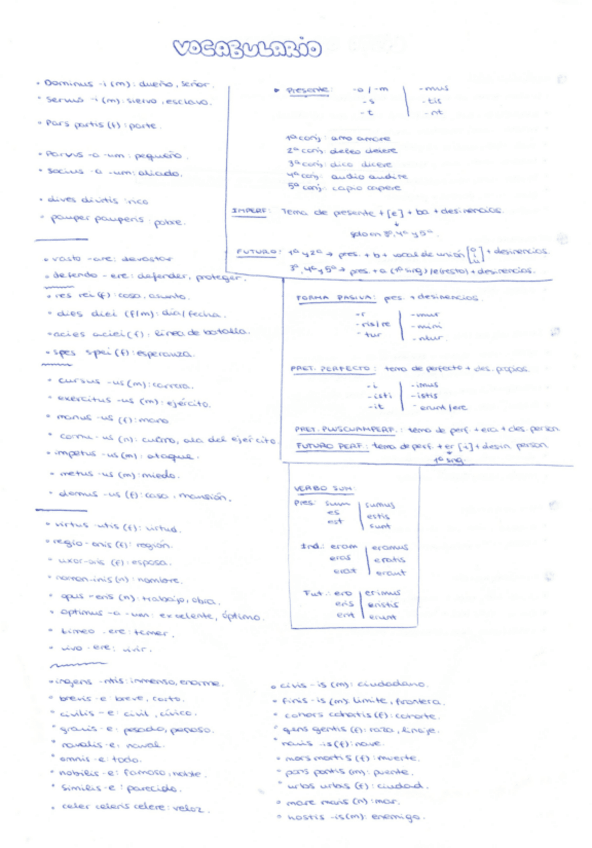 VOCABULARIO
• Dominus -i (m): dueño, señor.
• Servus -i (m): siervo, esclavo.
• Pars partis (f): parte.
• Parvus -a -um: pequeño.
• Socius -a -um: aliado.
• dives divitis: rico
• pauper pauperis: pobre.
• vasto -are: devastar
• defendo -ere: defender, proteger.
• res rei (f): cosa, asunto.
• dies diei (f/m): día/fecha.
• acies aciei (f): línea de batalla.
• spes spei (f): esperanza.
• cursus -us (m): carrera.
• exercitus -us (m): ejército.
• manus -us (f): mano
• cornu -us (n): cuerno, ala del ejército
• impetus -us (m): ataque.
• metus -us (m): miedo.
• domus -us (f): casa, mansión.
• virtus -utis (f): virtud.
• regio -onis (f): región.
• uxor -oris (f): esposa.
• nomen -inis (n): nombre.
• opus -eris (n): trabajo, obra.
• optimus -a -um: excelente, óptimo.
• timeo -ere: temer.
• vivo -ere: vivir.
• ingens -ntis: inmenso, enorme.
• brevis -e: breve, corto.
• civilis -e: civil, cívico.
• gravis -e: pesado,
• navalis -e: naval.
• omnis -e: todo.
• nobilis -e: famoso, noble.
• similis -e: parecido.
• celer celeris celere: veloz.
• civis -is (m): ciudadano.
• finis -is (m): límite, frontera.
• cohors cohortis (f): cohorte.
• gens gentis (f): raza, linaje.
• navis -is (f): nave.
• mors mortis (f): muerte.
• pons pontis (m): puente.
• urbs urbis (f): ciudad.
• mare maris (n): mar.
• hostis -is (m): enemigo.
• Presente: -o/-m | -mus
-s | -tis
-t | -nt
1ª conj: amo amare
2ª conj: deleo delere
3ª conj: dico dicere
4ª conj: audio audire
5ª conj: capio capere
IMPERF: Tema de presente + [e] + ba + desinencias
solo en 3ª, 4ª y 5ª
FUTURO: 1ª y 2ª → pres. + b + vocal de unión [o i u] + desinencias
3ª, 4ª y 5ª → pres + a (1ª sing)/e (resto) + desinencias.
FORMA PASIVA: pres + desinencias.
-r | -mur
-ris/re | -mini
-tur | -ntur
PRET. PERFECTO: tema de perfecto + des. propias.
-i | -imus
-isti | -istis
-it | -erunt/ere
PRET. PLUSCUAMPERF.: tema de perf + era + des. person
FUTURO PERF: tema de perf. + er [i] + desin. person
1ª sing
VERBO SUM:
Pres: sum | sumus
es | estis
est | sunt
Ind.: eram | eramus
eras | eratis
erat | erant
Fut.: ero | erimus
eris | eristis
erit | erunt